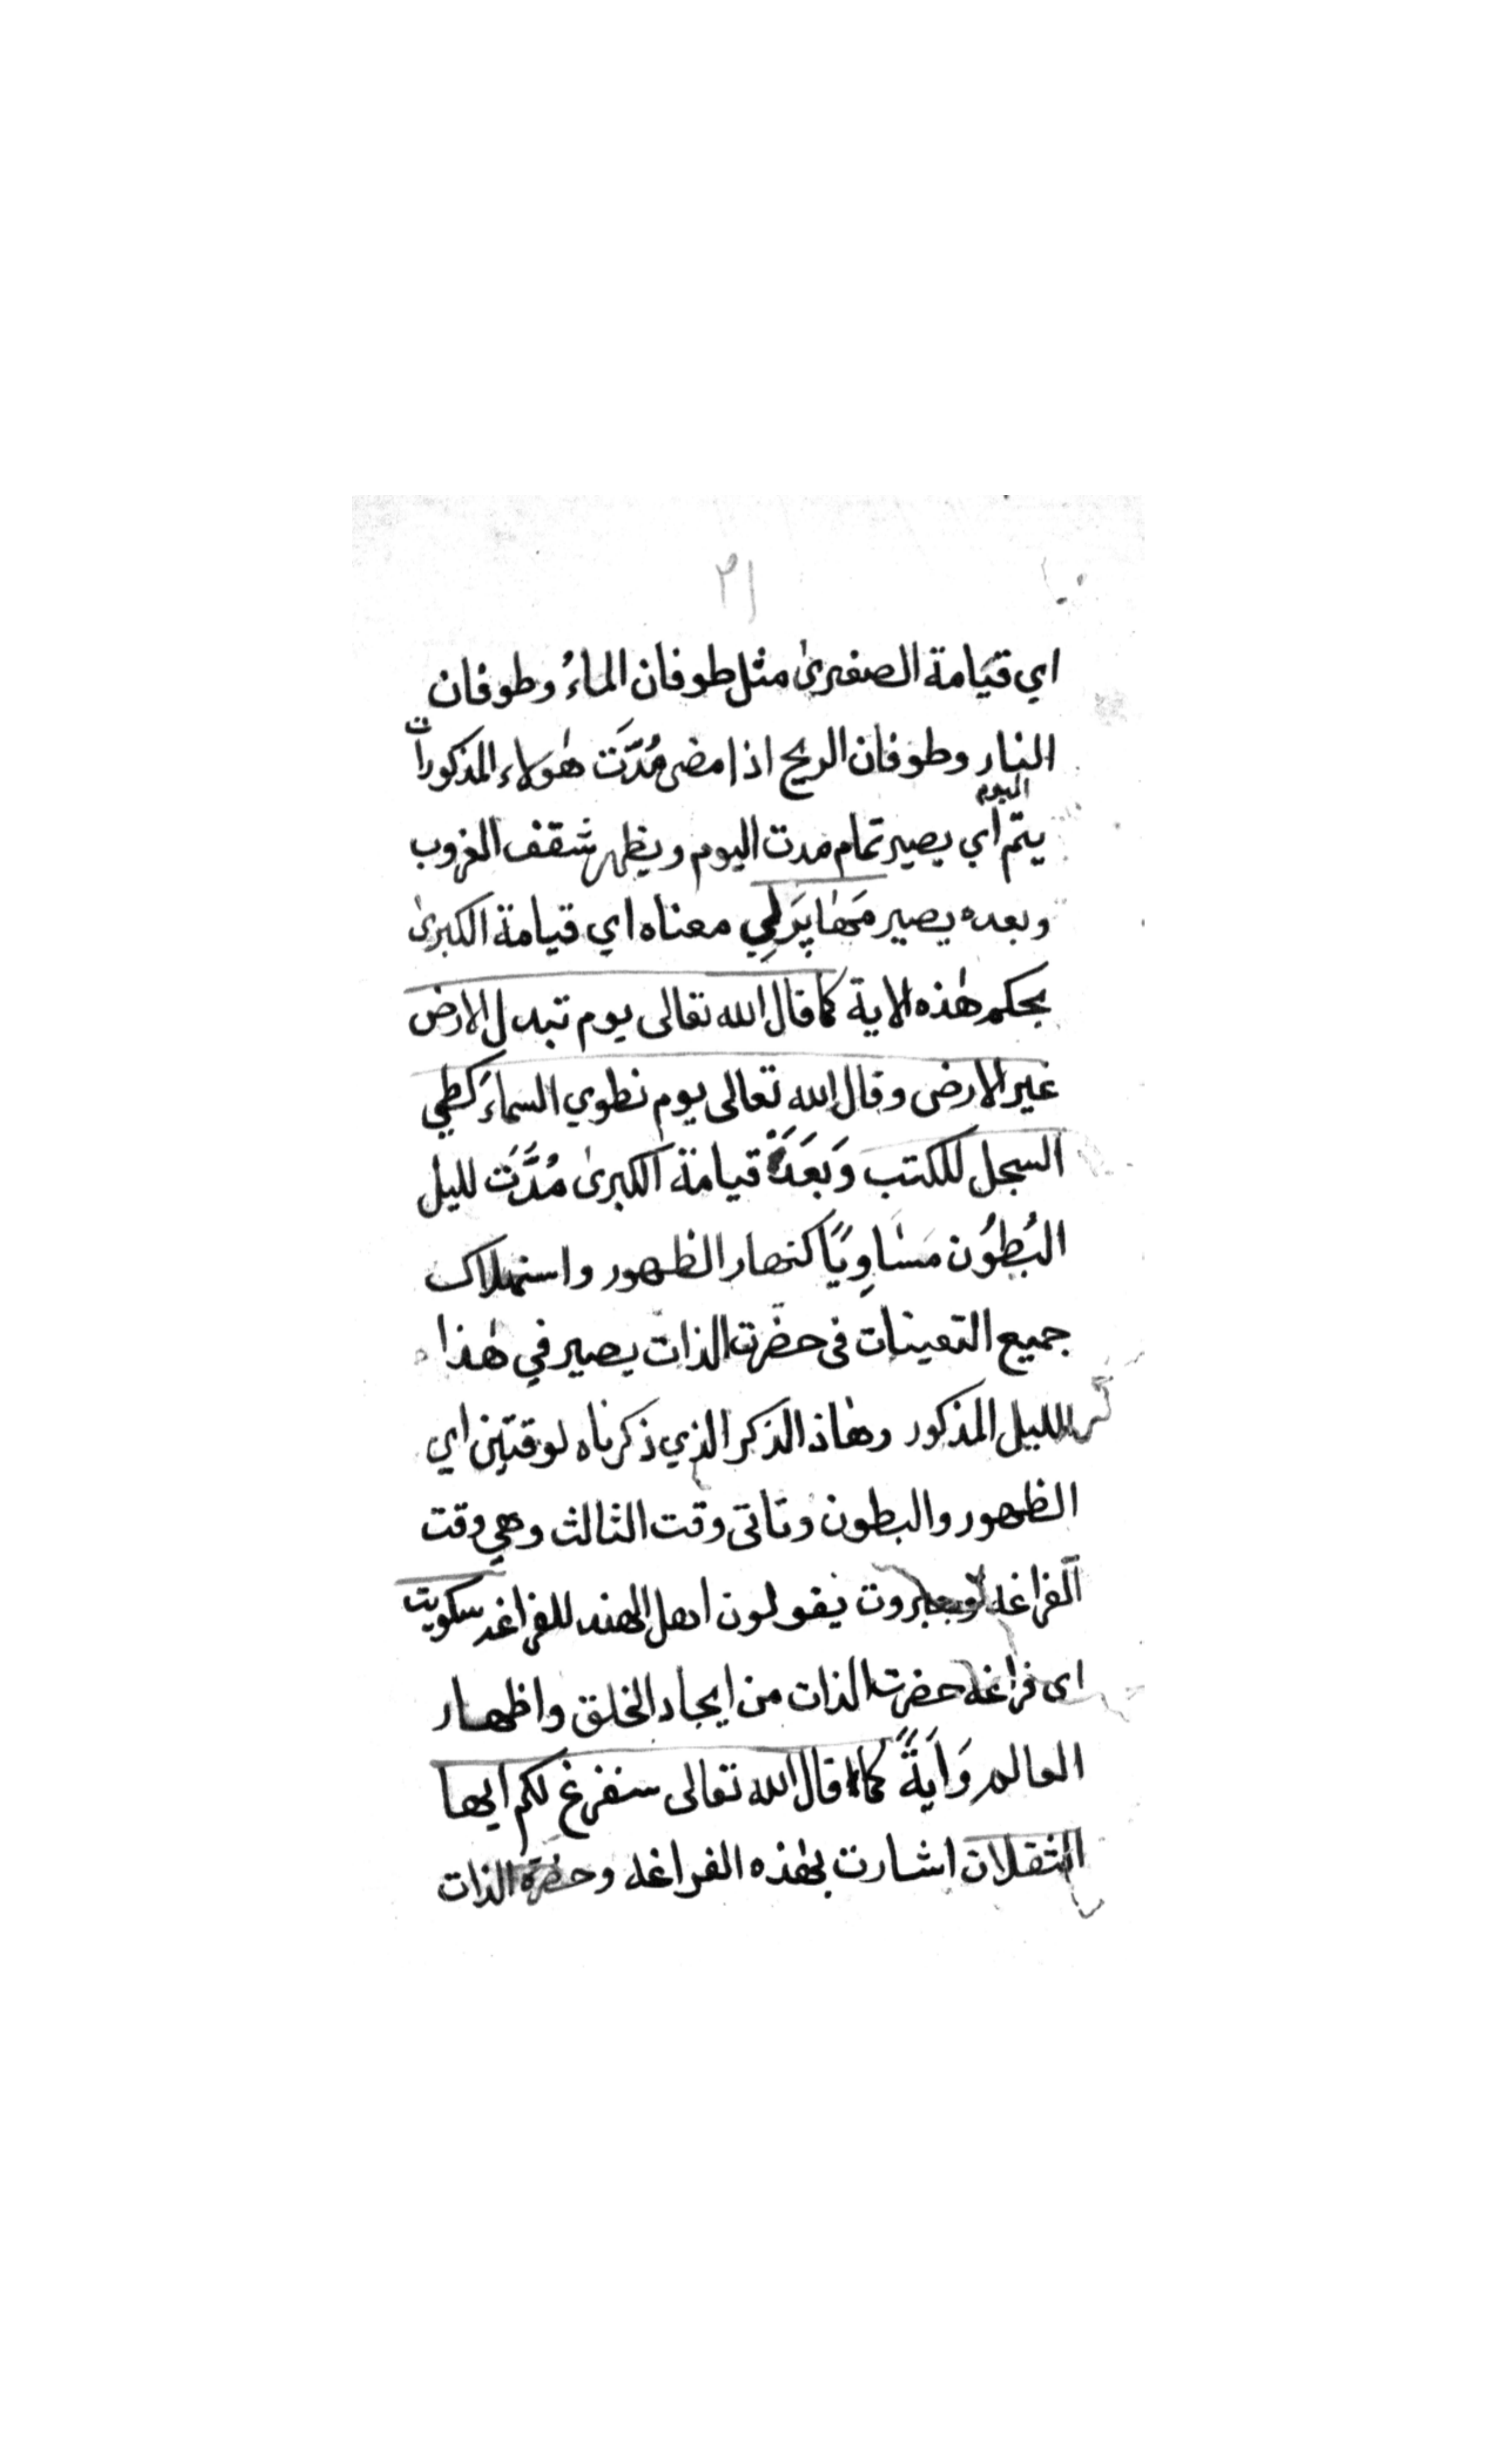 ٢١
اي قيامة الصغرىٰ مثل طوفان الماءُ وطوفان
النار وطوفان الريح اذا مضى مُدَّتَ هٰولاء المذكورات
اليوم
يتم اي يصير تمام مدت اليوم ويظهر شقف الغروب
وبعده يصير مَهٰا پَرَلِي معناه اي قيامة الكبرىٰ
بحكم هٰذه الاية كما قال الله تعالى يوم تبدل الارض
غير الارض وقال الله تعالى يوم نطوي السماءَ كطي
السجل للكتب وَبَعَدَهُ قيامة الكبرىٰ مُدَّتَ لليل
البُطوُن مسٰاوِيًا كنهار الظهور واستهلاك
جميع التعينات فى حضرت الذات يصير في هٰذا
الليل المذكور وهٰاذ الذكر الذي ذكرناه لوقتين اي
الظهور والبطون وتاتى وقت الثالث وهي وقت
الفراغه وجبروت يقولون اهل الهند للفراغه سكوپت
اى فراغه حضرت الذات من ايجاد الخلق واظهار
العالم وَايَةً كما قال الله تعالى سنفرغ لكم ايها
الثقلان اشارت بهٰذه الفراغه وحضرة الذات